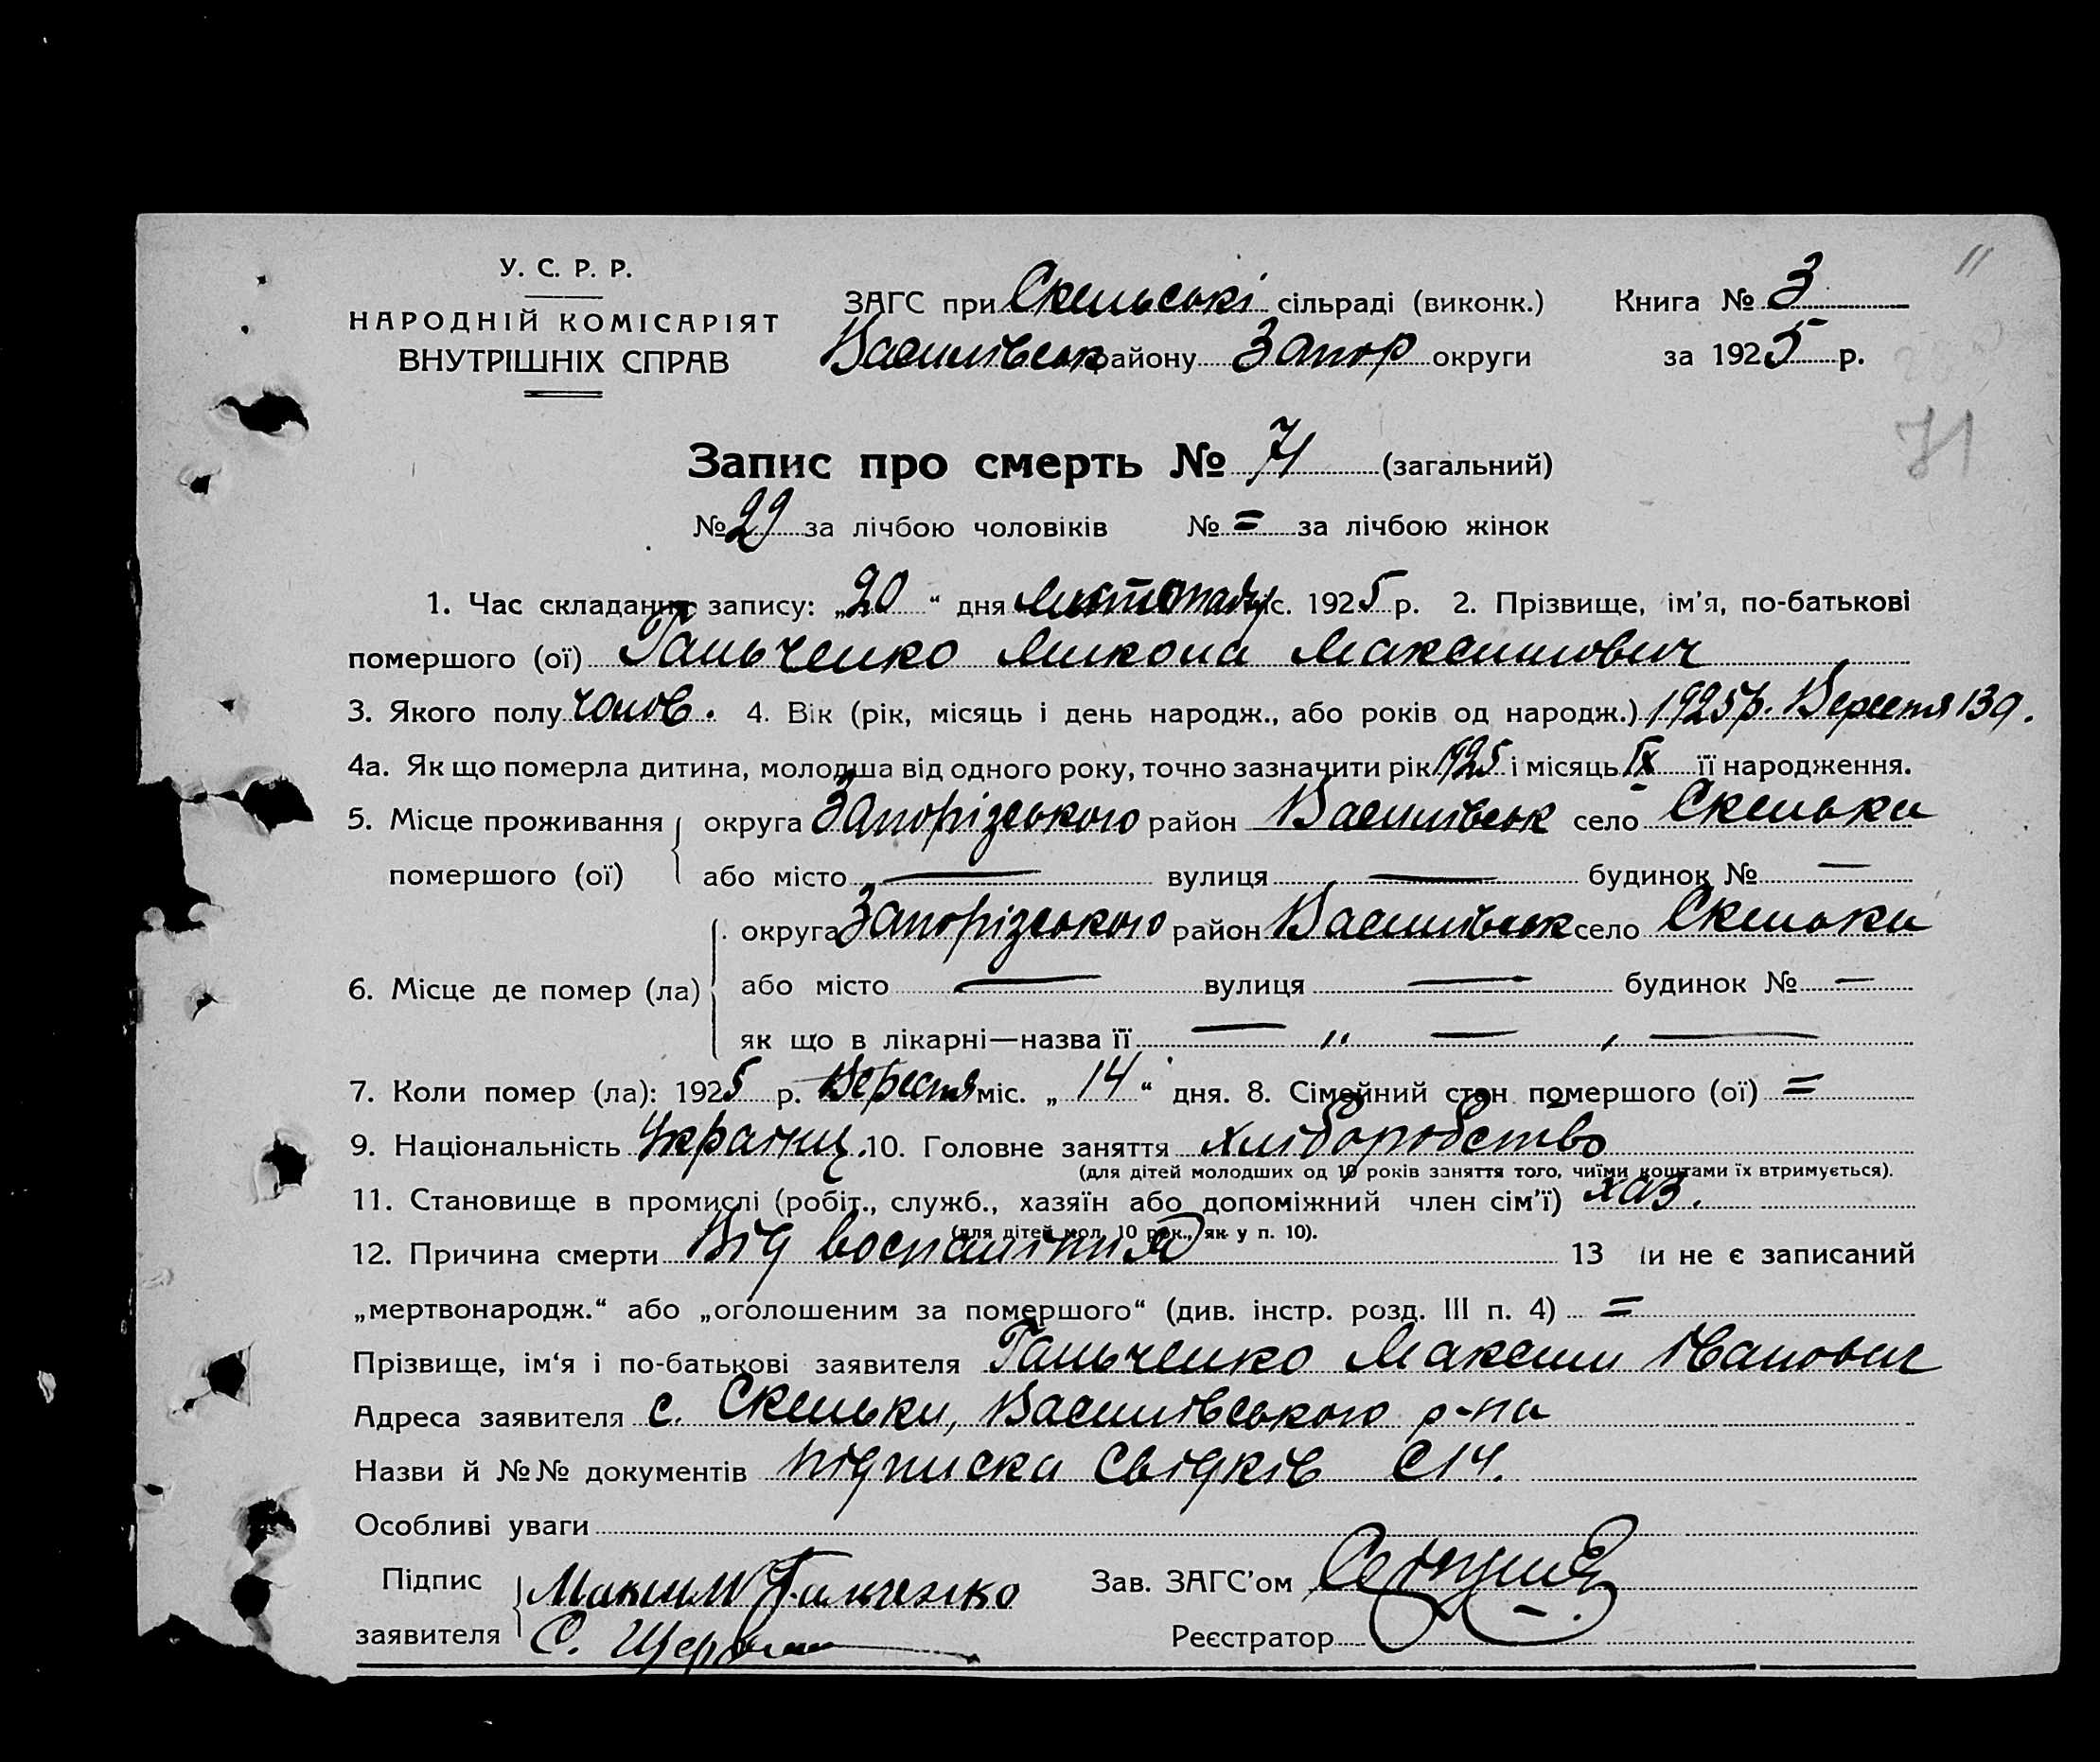 11
У. С. Р. Р.
НАРОДНІЙ КОМІСАРІЯТ
ВНУТРІШНІХ СПРАВ
ЗАГС при Скельські сільраді (виконк.)
Василівськ району Запор округи
Книга № 3
за 1925 р.
71
Запис про смерть № 71 (загальний)
№ 29 за лічбою чоловіків № = за лічбою жінок
1. Час складання запису: „20“ дня листопаду с. 1925 р. 2. Прізвище, ім’я, по-батькові
помершого (ої) Гальченко Микола Максимович
3. Якого полу чолов. 4. Вік (рік, місяць і день народж., або років од народж.) 1925р. Вересня 13д.
4а. Як що померла дитина, молодша від одного року, точно зазначити рік 1925 і місяць IX її народження.
5. Місце проживання округа Запорізського район Василівськ село Скельки
помершого (ої) або місто — вулиця — будинок № —
округа Запорізського район Василівськ село Скельки
6. Місце де помер (ла) або місто — вулиця — будинок № —
як що в лікарні—назва її — „ — , —
7. Коли помер (ла): 1925 р. Вересня міс. „14“ дня. 8. Сімейний стан помершого (ої) =
9. Національність Українц. 10. Головне заняття хліборобство
(для дітей молодших од 10 років заняття того, чиїми коштами їх втримується).
11. Становище в промислі (робіт., служб., хазяїн або допоміжний член сім’ї) хаз.
(для дітей мол. 10 рок., як у п. 10).
12. Причина смерти Від воспалітня 13 и не є записаний
„мертвонародж.“ або „оголошеним за помершого“ (див. інстр. розд. III п. 4) =
Прізвище, ім‘я і по-батькові заявителя Гальченко Максим Іванович
Адреса заявителя с. Скельки, Василівського р-на
Назви й №№ документів підписка свідків с14.
Особливі уваги
Підпис Максим Гальченко Зав. ЗАГС’ом
заявителя С. Реєстратор